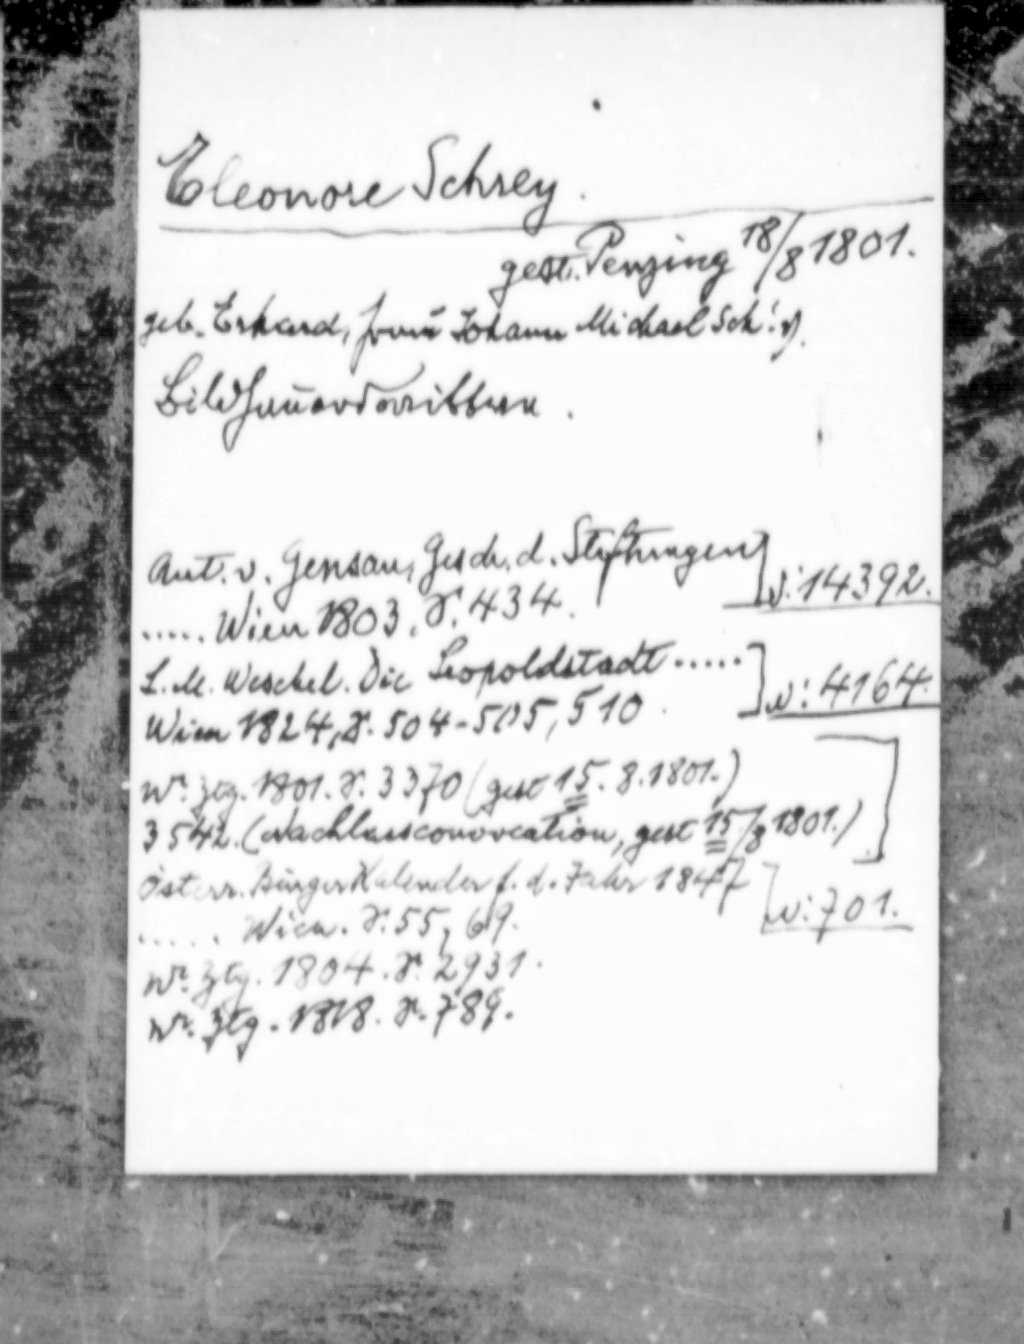 Eleonore Schrey.
gest. Penzing 18/8 1801.
geb. Erhard, Frau Johann Michael Sch:s
Bildhauerstochter.
Ant. v. Geusau, Gesch. d. Stiftungen
..... Wien 1803, S. 434. ] s: 14392.
L. M. Weschel. Die Leopoldstadt .....
Wien 1824, S. 504-505, 510. ] s: 4164.
Wr. Ztg. 1801. S. 3370 (gest 15. 8. 1801.)
3542. (Nachlassconvocation, gest 15/8 1801.)
Österr. Bürger Kalender f. d. Jahr 1847
..... Wien. S. 55, 69. ] s: 701.
Wr. Ztg. 1804. S. 2931.
Wr. Ztg. 1818. S. 789.